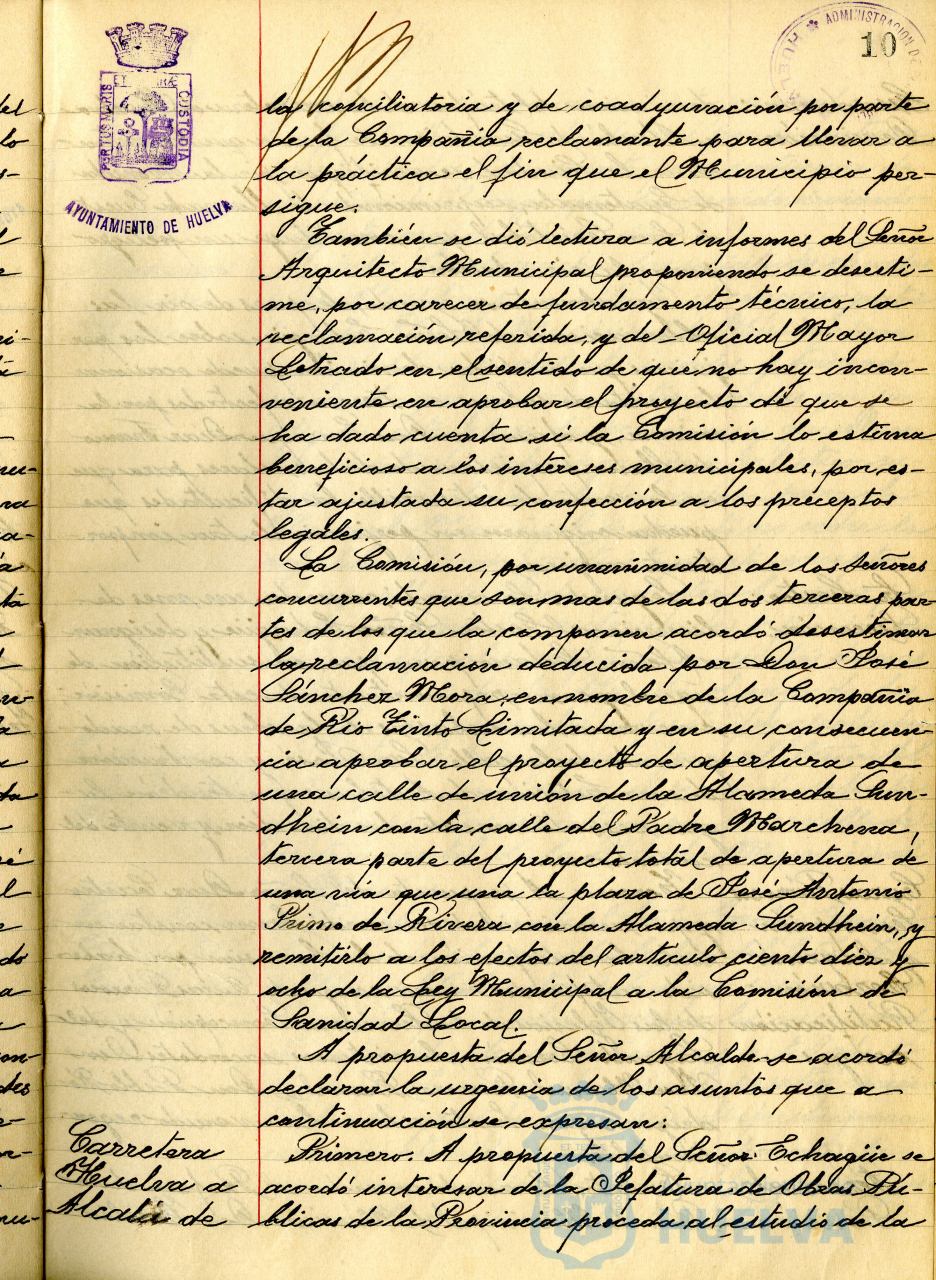 10
ADMINISTRACION DE
PORTUS MARIS ET TERRÆ CUSTODIA
AYUNTAMIENTO DE HUELVA
la conciliatoria y de coadyuvación por parte
de la Compañía reclamante para llevar a
la práctica el fin que el Municipio per-
sigue.
También se dió lectura a informes del Señor
Arquitecto Municipal proponiendo se desesti-
me, por carecer de fundamento técnico, la
reclamación referida, y del Oficial Mayor
Letrado en el sentido de que no hay incon-
veniente en aprobar el proyecto de que se
ha dado cuenta si la Comisión lo estima
beneficioso a los intereses municipales, por es-
tar ajustada su confección a los preceptos
legales.
La Comisión, por unanimidad de los Señores
concurrentes que son mas de las dos terceras par-
tes de los que la componen acordó desestimar
la reclamación deducida por Don José
Sánchez Mora, en nombre de la Compañia
de Rio Tinto Limitada y en su consecuen-
cia aprobar el proyecto de apertura de
una calle de unión de la Alameda Sun-
dhein con la calle del Padre Marchena,
tercera parte del proyecto total de apertura de
una via que una la plaza de José Antonio
Primo de Rivera con la Alameda Sundhein, y
remitirlo a los efectos del articulo ciento diez y
ocho de la Ley Municipal a la Comisión de
Sanidad Local.
A propuesta del Señor Alcalde se acordó
declarar la urgencia de los asuntos que a
continuación se expresan:
Carretera
Huelva a
Alcalá de
Primero. A propuesta del Señor Echagüe se
acordó interesar de la Jefatura de Obras Pú-
blicas de la Provincia proceda al estudio de la
HUELVA